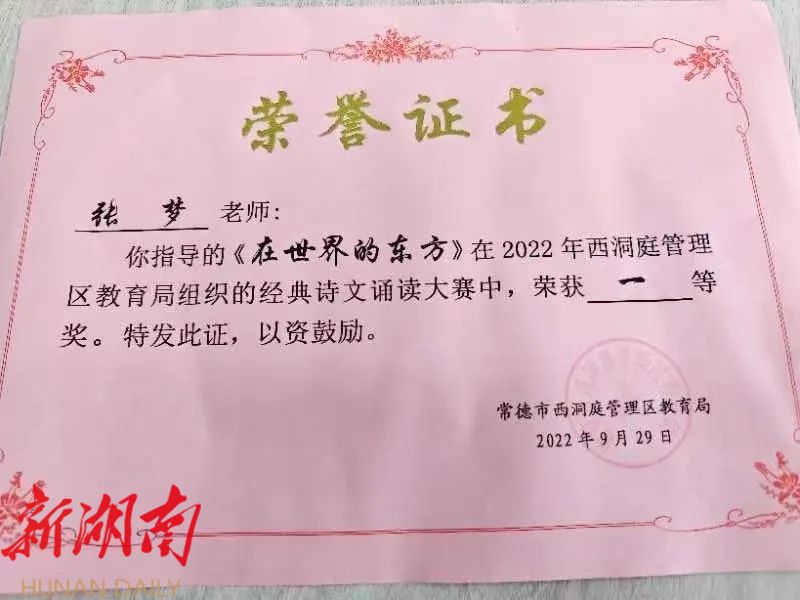 荣誉证书
张 梦 老师:
你指导的《在世界的东方》在2022年西洞庭管理
区教育局组织的经典诗文诵读大赛中，荣获 一 等
奖。特发此证，以资鼓励。
常德市西洞庭管理区教育局
2022年9月29日
新湖南
HUNAN DAILY